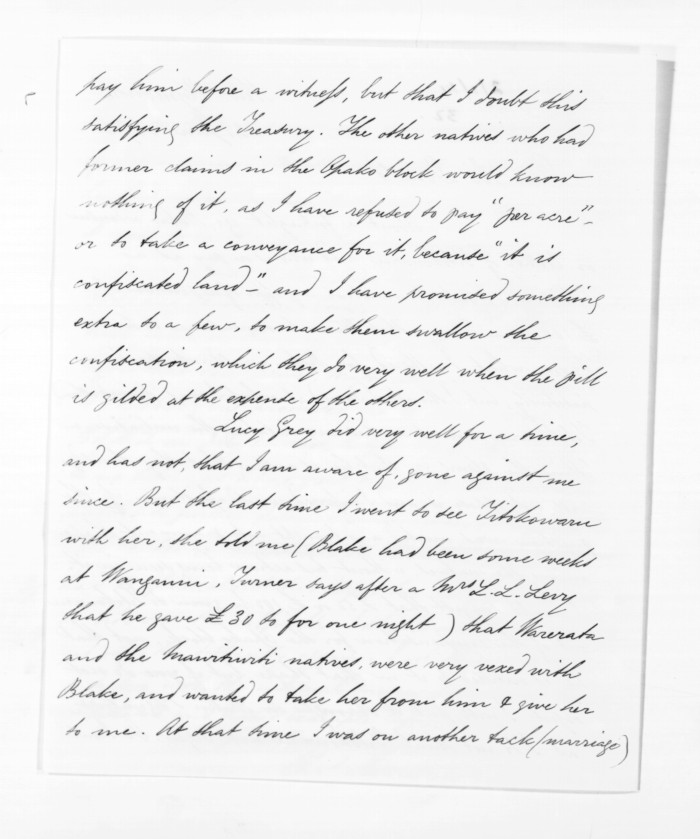 pay him before a witness, but that I doubt this
satisfying the Treasury. The other natives who had
former claims in the Opako block would know
nothing of it, as I have refused to pay "per acre"-
or to take a conveyance for it, because "it is
confiscated land-" and I have promised something
extra to a few, to make them swallow the
confiscation, which they do very well when the pill
is gilded at the expense of the others.
Lucy Grey did very well for a time,
and has not, that I am aware of, gone against me
since. But the last time I went to see Titokowaru
with her, she told me (Blake had been some weeks
at Wanganui, Turner says after a Mrs L. L. Levy
that he gave £30 to for one night) that Warerata
and the Mawitiwiti natives, were very vexed with
Blake, and wanted to take her from him & give her
to me. At that time I was on another tack (marriage)